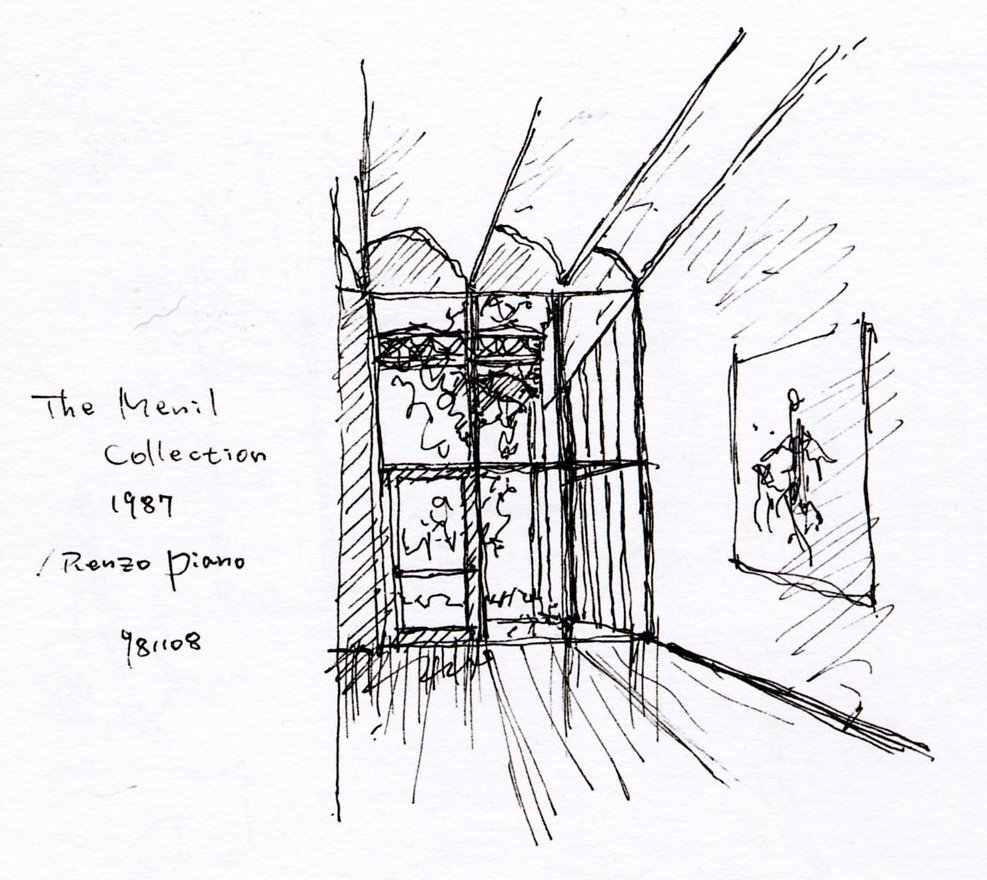 The Menil
Collection
1987
/ Renzo Piano
981108